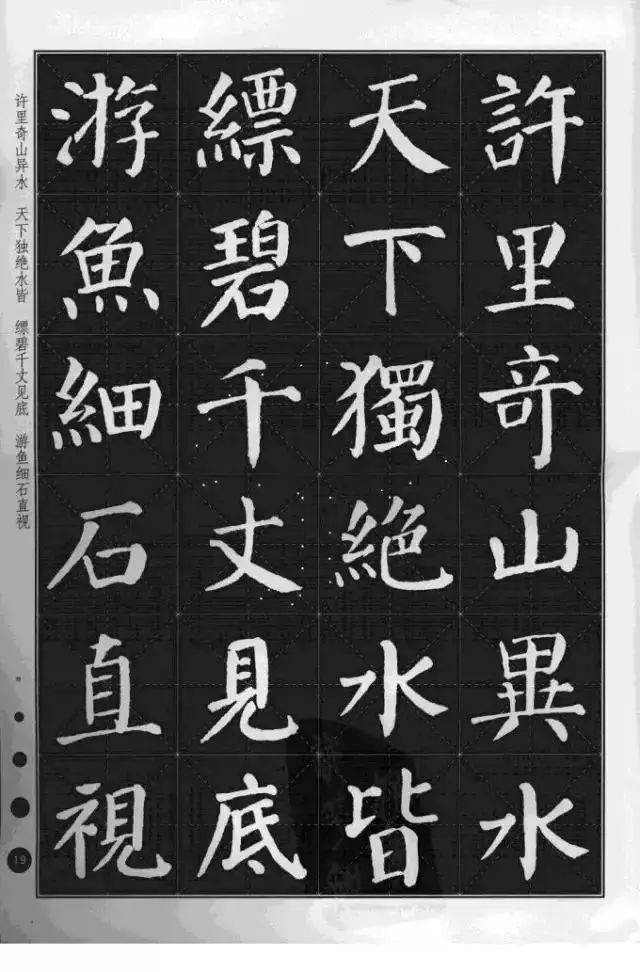 許里奇山異水
天下獨絕水皆
縹碧千丈見底
游魚細石直視
许里奇山异水 天下独绝水皆 缥碧千丈见底 游鱼细石直视
19